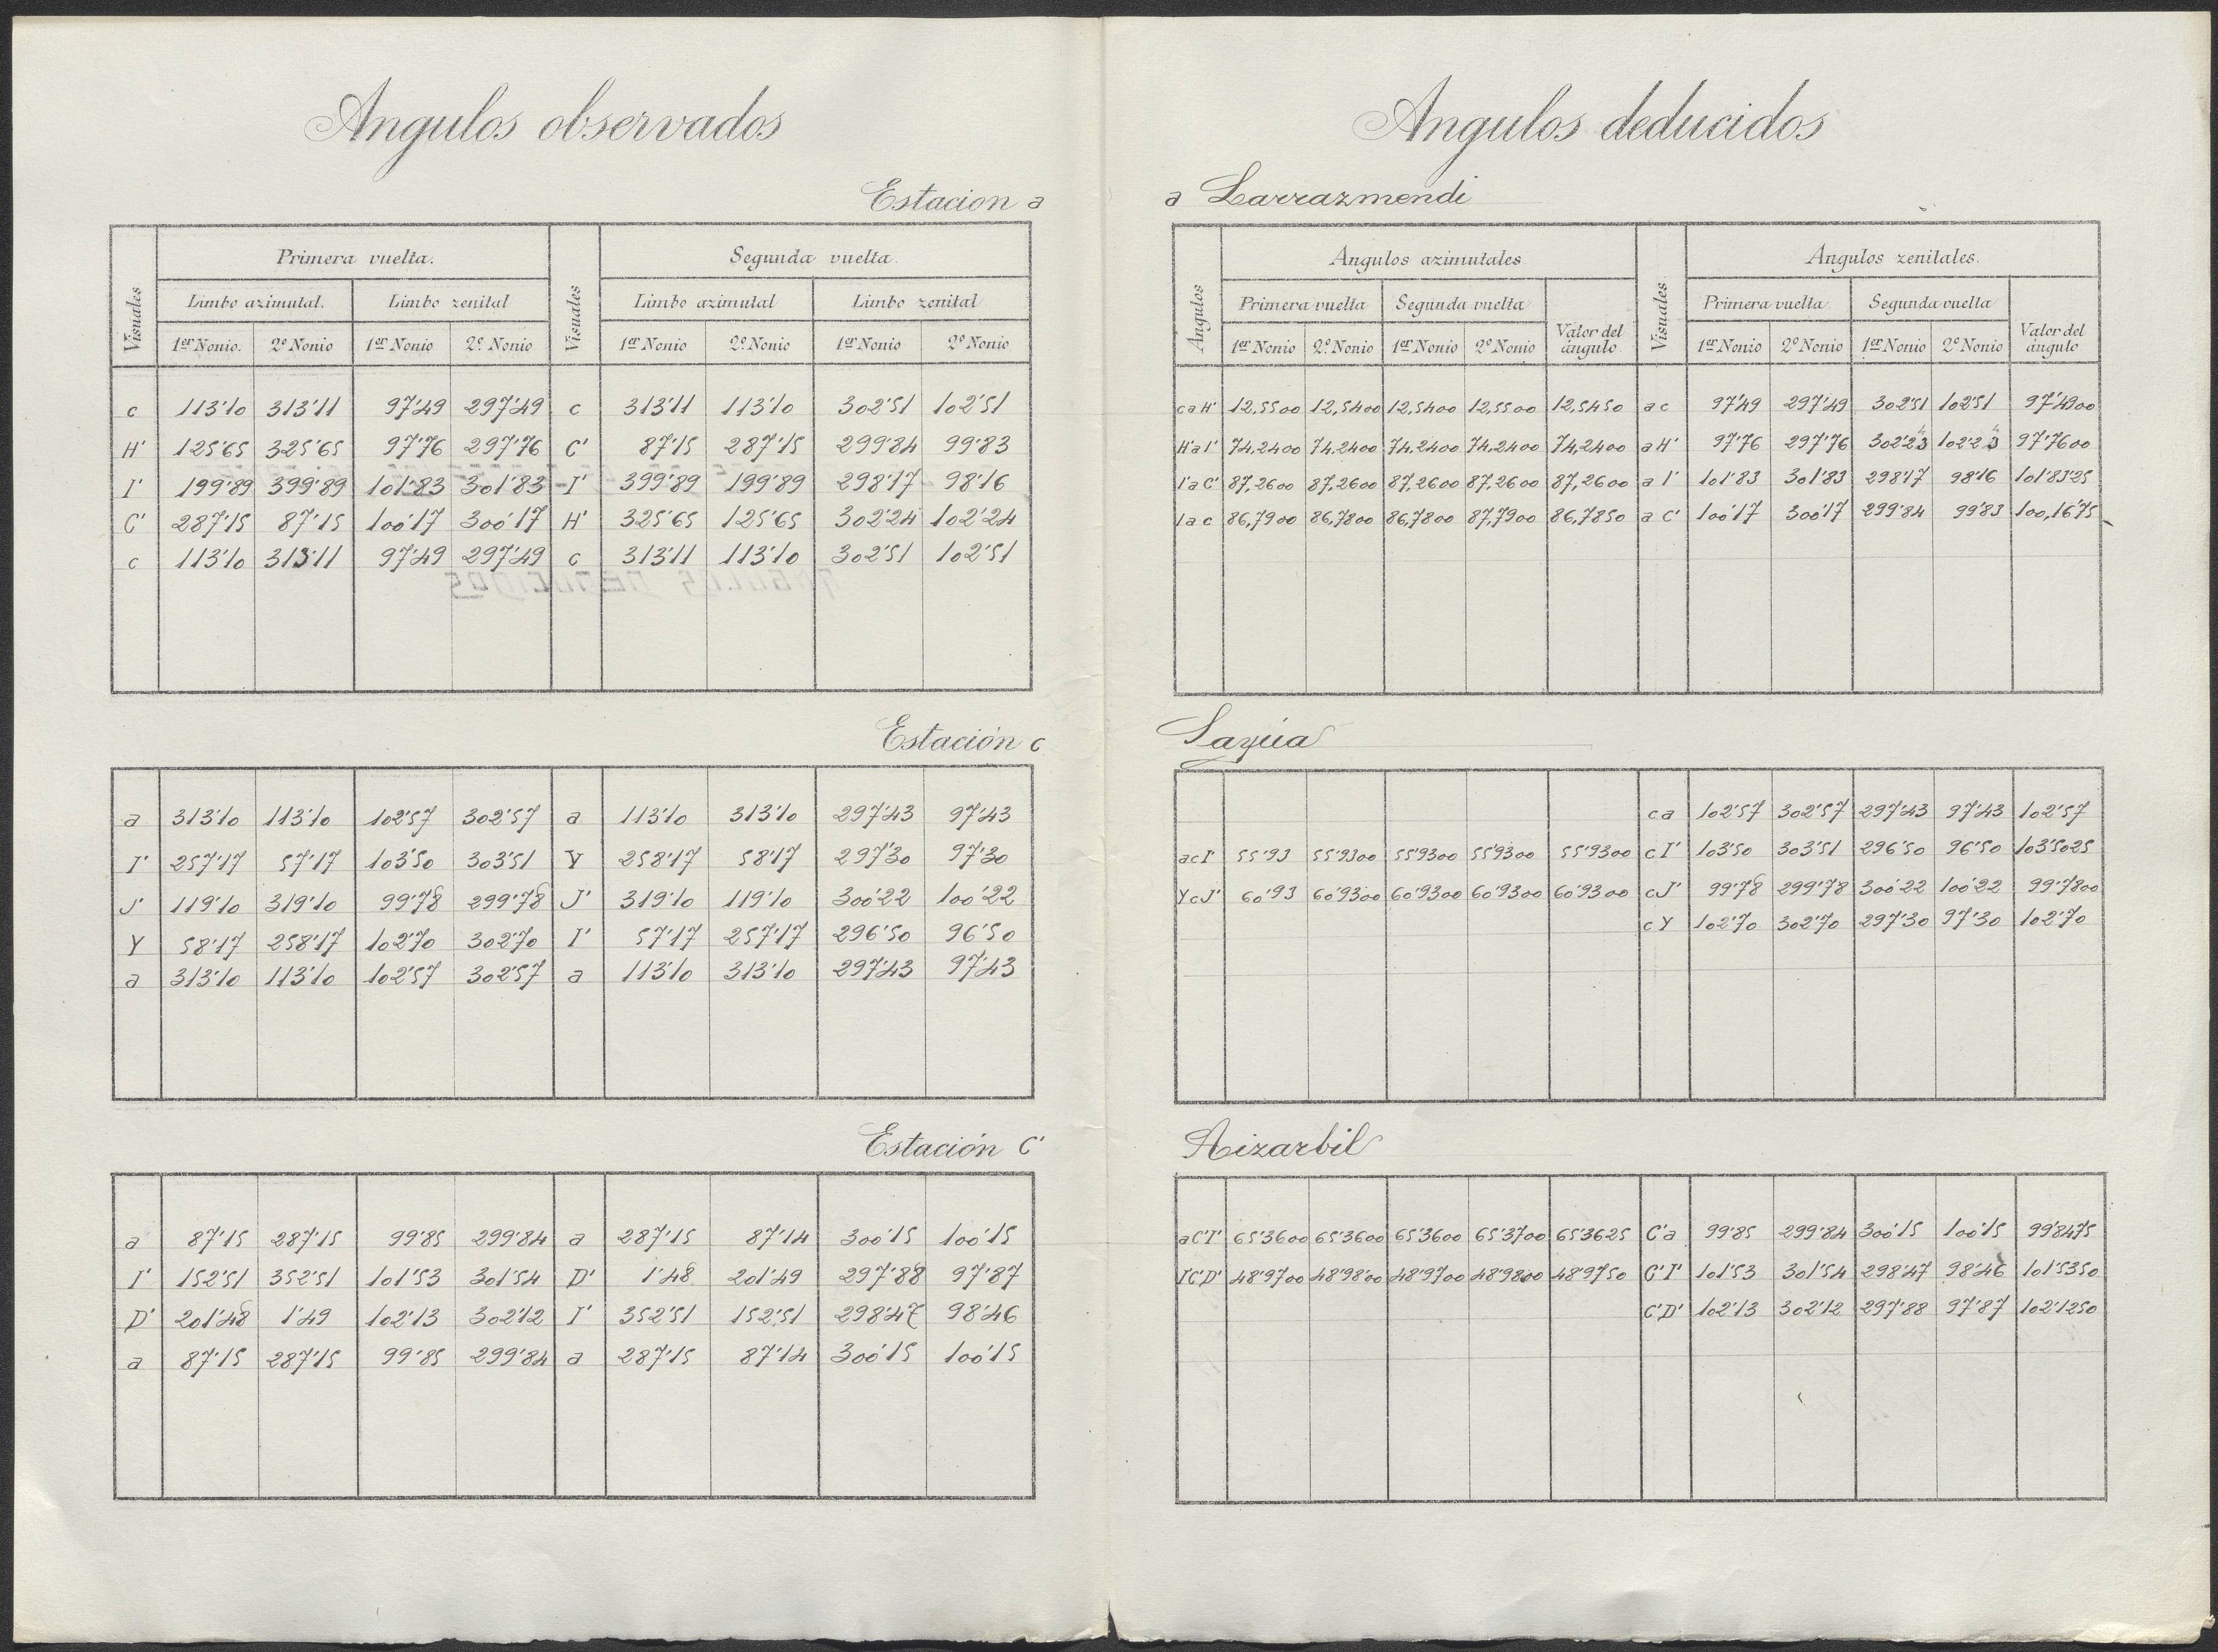 Angulos observados
Estacion a
Visuales | Primera vuelta. | Visuales | Segunda vuelta.
Limbo azimutal. | Limbo zenital | Limbo azimutal | Limbo zenital
1er Nonio. | 2º Nonio | 1er Nonio | 2º Nonio | 1er Nonio | 2º Nonio | 1er Nonio | 2º Nonio
c | 113'10 | 313'11 | 97'49 | 297'49 | c | 313'11 | 113'10 | 302'51 | 102'51
H' | 125'65 | 325'65 | 97'76 | 297'76 | C' | 87'15 | 287'15 | 299'84 | 99'83
I' | 199'89 | 399'89 | 101'83 | 301'83 | I' | 399'89 | 199'89 | 298'17 | 98'16
C' | 287'15 | 87'15 | 100'17 | 300'17 | H' | 325'65 | 125'65 | 302'24 | 102'24
c | 113'10 | 313'11 | 97'49 | 297'49 | c | 313'11 | 113'10 | 302'51 | 102'51
Estación c
a | 313'10 | 113'10 | 102'57 | 302'57 | a | 113'10 | 313'10 | 297'43 | 97'43
I' | 257'17 | 57'17 | 103'50 | 303'51 | Y | 258'17 | 58'17 | 297'30 | 97'30
J' | 119'10 | 319'10 | 99'78 | 299'78 | J' | 319'10 | 119'10 | 300'22 | 100'22
Y | 58'17 | 258'17 | 102'70 | 302'70 | I' | 57'17 | 257'17 | 296'50 | 96'50
a | 313'10 | 113'10 | 102'57 | 302'57 | a | 113'10 | 313'10 | 297'43 | 97'43
Estación C'
a | 87'15 | 287'15 | 99'85 | 299'84 | a | 287'15 | 87'14 | 300'15 | 100'15
I' | 152'51 | 352'51 | 101'53 | 301'54 | D' | 1'48 | 201'49 | 297'88 | 97'87
D' | 201'48 | 1'49 | 102'13 | 302'12 | I' | 352'51 | 152'51 | 298'47 | 98'46
a | 87'15 | 287'15 | 99'85 | 299'84 | a | 287'15 | 87'14 | 300'15 | 100'15
Angulos deducidos
a Larrazmendi
Angulos | Angulos azimutales | Visuales | Angulos zenitales.
Primera vuelta | Segunda vuelta | Valor del ángulo | Primera vuelta | Segunda vuelta | Valor del ángulo
1er Nonio | 2º Nonio | 1er Nonio | 2º Nonio | 1er Nonio | 2º Nonio | 1er Nonio | 2º Nonio
c a H' | 12,5500 | 12,5400 | 12,5400 | 12,5500 | 12,5450 | a c | 97'49 | 297'49 | 302'51 | 102'51 | 97'4900
H' a I' | 74,2400 | 74,2400 | 74,2400 | 74,2400 | 74,2400 | a H' | 97'76 | 297'76 | 302'24 | 102'24 | 97'7600
I' a C' | 87,2600 | 87,2600 | 87,2600 | 87,2600 | 87,2600 | a I' | 101'83 | 301'83 | 298'17 | 98'16 | 101'8325
I a c | 86,7900 | 86,7800 | 86,7800 | 87,7900 | 86,7850 | a C' | 100'17 | 300'17 | 299'84 | 99'83 | 100,1675
c a | 102'57 | 302'57 | 297'43 | 97'43 | 102'57
a c I' | 55'93 | 55'9300 | 55'9300 | 55'9300 | 55'9300 | c I' | 103'50 | 303'51 | 296'50 | 96'50 | 103'5025
Y c J' | 60'93 | 60'9300 | 60'9300 | 60'9300 | 60'9300 | c J' | 99'78 | 299'78 | 300'22 | 100'22 | 99'7800
c Y | 102'70 | 302'70 | 297'30 | 97'30 | 102'70
Aizarbil
a C' I' | 65'3600 | 65'3600 | 65'3600 | 65'3700 | 65'3625 | C' a | 99'85 | 299'84 | 300'15 | 100'15 | 99'8475
I C' D' | 48'9700 | 48'9800 | 48'9700 | 48'9800 | 48'9750 | C' I' | 101'53 | 301'54 | 298'47 | 98'46 | 101'5350
C' D' | 102'13 | 302'12 | 297'88 | 97'87 | 102'1250